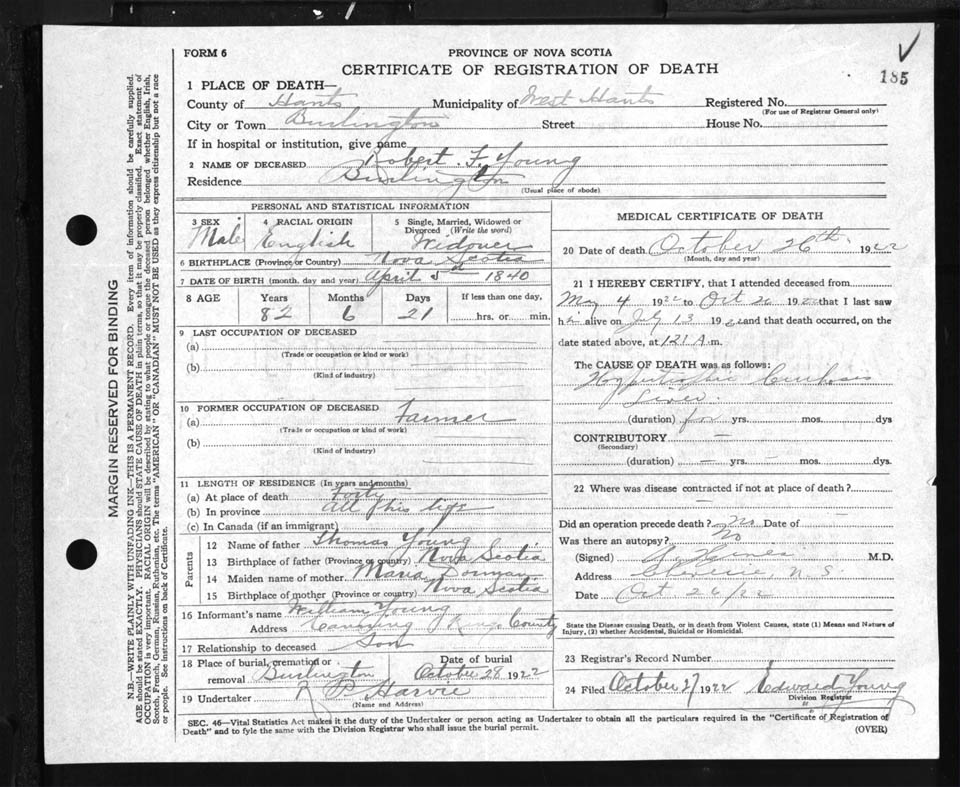 FORM 6
PROVINCE OF NOVA SCOTIA
CERTIFICATE OF REGISTRATION OF DEATH
185
1 PLACE OF DEATH—
County of Hants Municipality of West Hants Registered No.
(For use of Registrar General only)
City or Town Burlington Street House No.
If in hospital or institution, give name
2 NAME OF DECEASED Robert F. Young
Residence Burlington
(Usual place of abode)
PERSONAL AND STATISTICAL INFORMATION
3 SEX Male
4 RACIAL ORIGIN English
5 Single, Married, Widowed or Divorced (Write the word) Widower
6 BIRTHPLACE (Province or Country) Nova Scotia
7 DATE OF BIRTH (month, day and year) April 5 1840
8 AGE Years Months Days If less than one day,
82 6 21 hrs. or min.
9 LAST OCCUPATION OF DECEASED
(a)
(Trade or occupation or kind or work)
(b)
(Kind of industry)
10 FORMER OCCUPATION OF DECEASED
(a) Farmer
(Trade or occupation or kind of work)
(b)
(Kind of industry)
11 LENGTH OF RESIDENCE (In years and months)
(a) At place of death Forty
(b) In province All his life
(c) In Canada (if an immigrant)
Parents
12 Name of father Thomas Young
13 Birthplace of father (Province or country) Nova Scotia
14 Maiden name of mother Maria Dorman
15 Birthplace of mother (Province or country) Nova Scotia
16 Informant's name William Young
Address Canning Kings County
17 Relationship to deceased Son
18 Place of burial, cremation or removal Burlington
Date of burial October 28 1922
19 Undertaker J P Harvie
(Name and Address)
MEDICAL CERTIFICATE OF DEATH
20 Date of death October 26th 1922
(Month, day and year)
21 I HEREBY CERTIFY, that I attended deceased from
May 4 1922 to Oct 26 1922 that I last saw
him alive on July 13 1922 and that death occurred, on the
date stated above, at 121 A.m.
The CAUSE OF DEATH was as follows:
Hypertrophic Cirrhosis
Liver
(duration) for yrs. mos. dys.
CONTRIBUTORY —
(Secondary)
(duration) — yrs. — mos. dys.
22 Where was disease contracted if not at place of death?
Did an operation precede death? No Date of —
Was there an autopsy? No
(Signed) M.D.
Address N.S.
Date Oct 26/22
State the Disease causing Death, or in death from Violent Causes, state (1) Means and Nature of
Injury, (2) whether Accidental, Suicidal or Homicidal.
23 Registrar's Record Number
24 Filed October 27 1922 Edward Young
Division Registrar
SEC. 46—Vital Statistics Act makes it the duty of the Undertaker or person acting as Undertaker to obtain all the particulars required in the "Certificate of Registration of
Death" and to fyle the same with the Division Registrar who shall issue the burial permit.
(OVER)
MARGIN RESERVED FOR BINDING
N.B.—WRITE PLAINLY WITH UNFADING INK—THIS IS A PERMANENT RECORD. Every item of information should be carefully supplied.
AGE should be stated EXACTLY. PHYSICIANS should STATE CAUSE OF DEATH in plain terms, so that it may be properly classified. Exact statement of
OCCUPATION is very important. RACIAL ORIGIN will be described by stating to what people or tongue the deceased person belonged whether English, Irish,
Scotch, French, German, Russian, Ruthenian, etc. The terms "AMERICAN" OR "CANADIAN" MUST NOT BE USED as they express citizenship but not a race
or people. See instructions on back of Certificate.